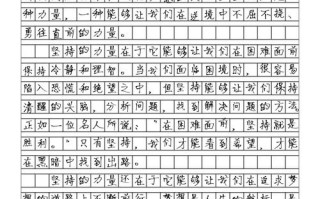 种力量，一种能够让我们在逆境中不屈不挠、
勇往直前的力量。
坚持的力量在于它能够让我们在困难面前
保持冷静和理智。当我们面临困境时，很容易
陷入恐慌和绝望之中，但坚持能够让我们保持
清醒的头脑，分析问题，找到解决问题的方法
正如一位名人所说：“在困难面前，坚持就是
胜利。”只有坚持，我们才能看到希望，才能
在黑暗中找到出路。
坚持的力量还在于它能够让我们在追求梦